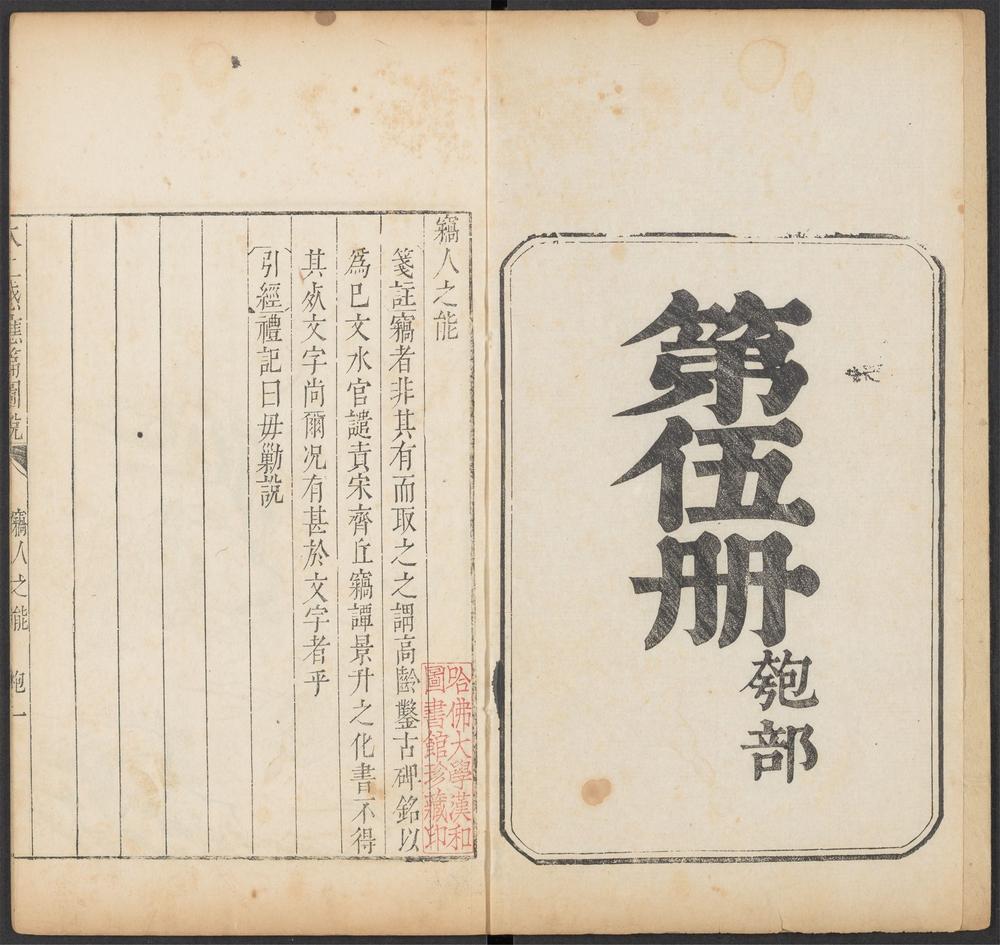 第伍册
匏部
竊人之能
箋註竊者非其有而取之之謂高齡鑿古碑銘以
爲已文水官譴責宋齊丘竊譚景升之化書不得
其死文字尚爾况有甚於文字者乎
引經禮記曰毋勦說
哈佛大學漢和
圖書館珍藏印
太上感應篇圖説
竊人之能
匏一